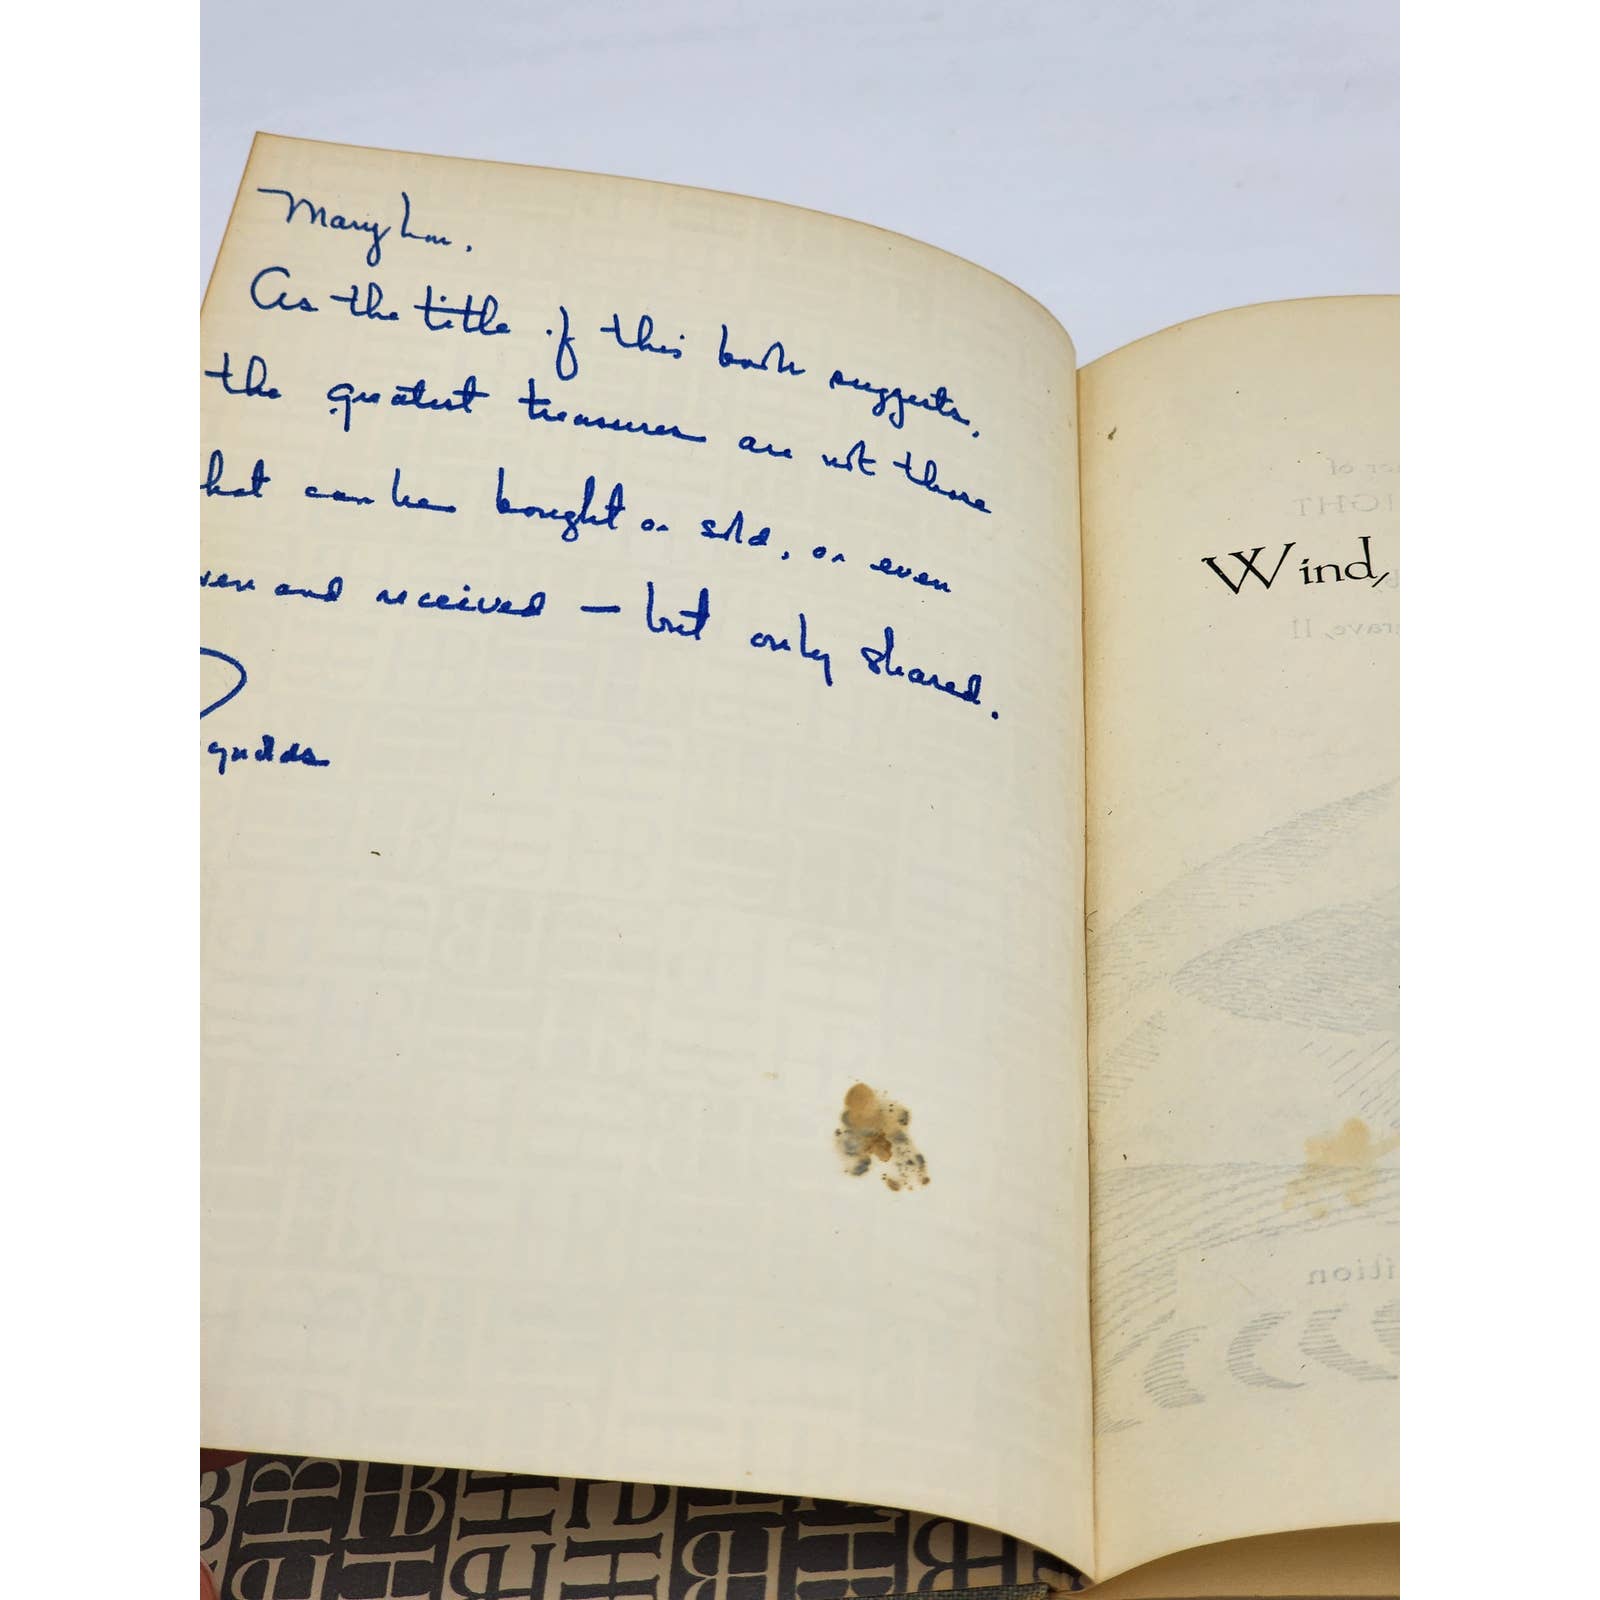 Mary Lou.
As the title of this book suggests,
the greatest treasures are not those
hat can be bought or sold, or even
ven and received — but only shared.
ynolds
or of
IGHT
Wind,
rave, II
ition